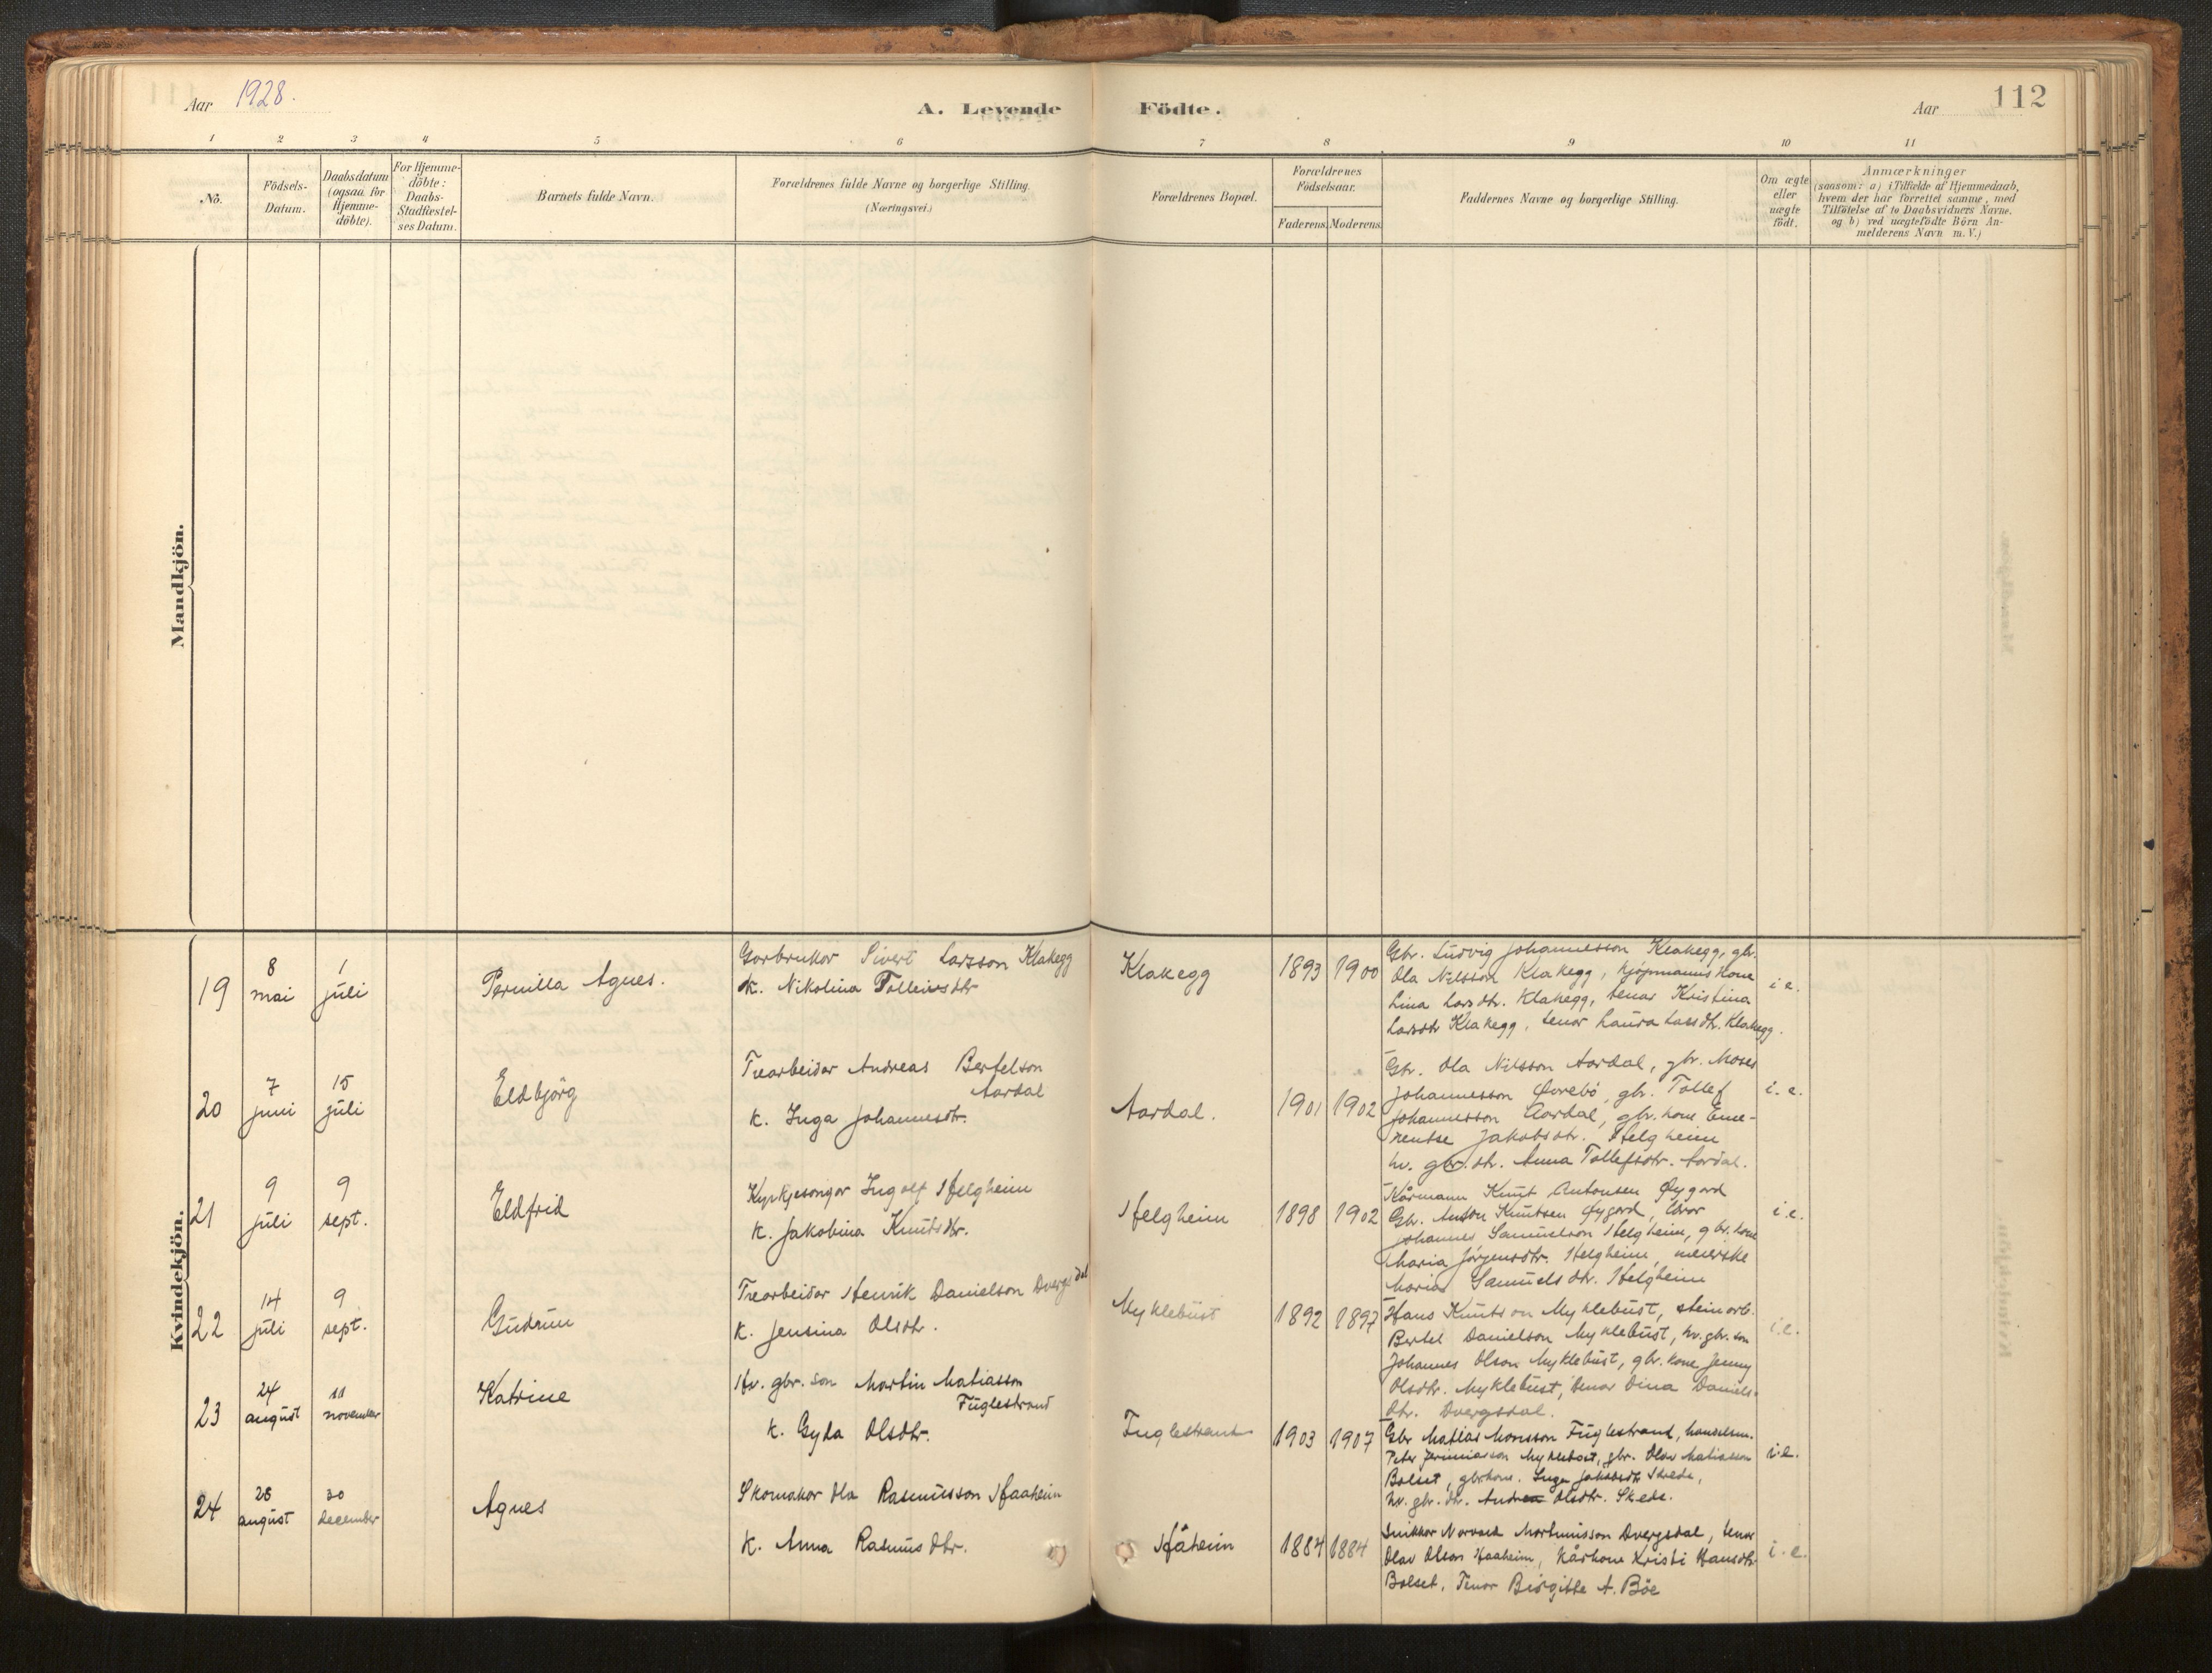 Aar 1928.
A. Levende Födte.
Aar 112
1 2 3 4 5 6 7 8 9 10 11
No.
Födsels-Datum.
Daabsdatum (ogsaa för Hjemme-döbte).
For Hjemme-döbte: Daabs-Stadfæstel-ses Datum.
Barnets fulde Navn.
Forældrenes fulde Navne og borgerlige Stilling.
(Næringsvei.)
Forældrenes Bopæl.
Forældrenes Födselsaar.
Faderens. Moderens.
Faddernes Navne og borgerlige Stilling.
Om ægte eller uægte födt.
Anmærkninger
(saasom: a) i Tilfælde af Hjemmedaab,
hvem der har forrettet samme, med
Tilföielse af to Daabsvidners Navne.
og b) ved uægtefödte Börn An-
melderens Navn m. V.)
Mandkjön.
Kvindekjön.
19
8 mai
1 juli
Pernilla Agnes.
Garbrukar Sivert Larsson Klakegg
K. Nikolina Tolleivsdtr
Klakegg
1893 1900
Gbr. Ludvig Johannesson Klakegg, gbr.
Ola Nilsson Klakegg, kjöpmanns kone
Lina Larsdtr. Klakegg, tenar Kristina
Larsdtr Klakegg, tenar Laura Larsdtr. Klakegg.
i e.
20
7 juni
15 juli
Eldbjörg
Trearbeidar Andreas Bertelson
Aardal
K. Inga Johannesdtr.
Aardal.
1901 1902
Gbr. Ola Nilsson Aardal, gbr. Moses
Johannesson Övrebö, gbr. Tollef
Johannesson Aardal, gbr. kone Eme-
rentse Jakobsdtr. Helgheim
hv. gbr. dtr. Anna Tollefsdtr. Aardal.
i. e.
21
9 juli
9 sept.
Eldfrid
Kyrkjesongar Ingolf Helgheim
K. Jakobina Knutsdtr.
Helgheim
1898 1902
Kårmann Knut Antonsen Öygard
Gbr. Anton Knutsen Öygard,
Johannes Samuelson Helgheim, gbr. kone
Maria Jörgensdtr. Helgheim, meierske
Maria Samuelsdtr. Helgheim
i. e.
22
14 juli
9 sept.
Gudrun
Trearbeidar Henrik Danielson Dvergsdal
K. Jensina Olsdtr.
Myklebust
1892 1897
Hans Knutson Myklebust, steinarb.
Bertel Danielson Myklebust, hv. gbr. son
Johannes Olson Myklebust, gbr. kone Jenny
Olsdtr. Myklebust, tenar Dina Daniels-
dtr. Dvergsdal.
i. e.
23
24 august
11 november
Katrine
Hv. gbr. son Martin Matiasson
Fuglestrand
K. Gyda Olsdtr.
Fuglestrand
1903 1907
Gbr Matias Monsson Fuglestrand, handelsm.
Peter Myklebost, gbr. Olav Matiasson
Bolset, gbrkone. Inga Jakobsdtr Skrede,
hv. gbr. dtr. Andrea Olsdtr. Skede.
i e.
24
28 august
30 december
Agnes
Skomakar Ola Rasmusson Haaheim
K. Anna Rasmusdtr.
Håheim
1884 1884
Snikkar Martinusson Dvergsdal, tenar
Olav Olson Haaheim, Kårkone Kristi Hansdtr.
Bolset, Tenar Birgitte A. Böe
i. e.